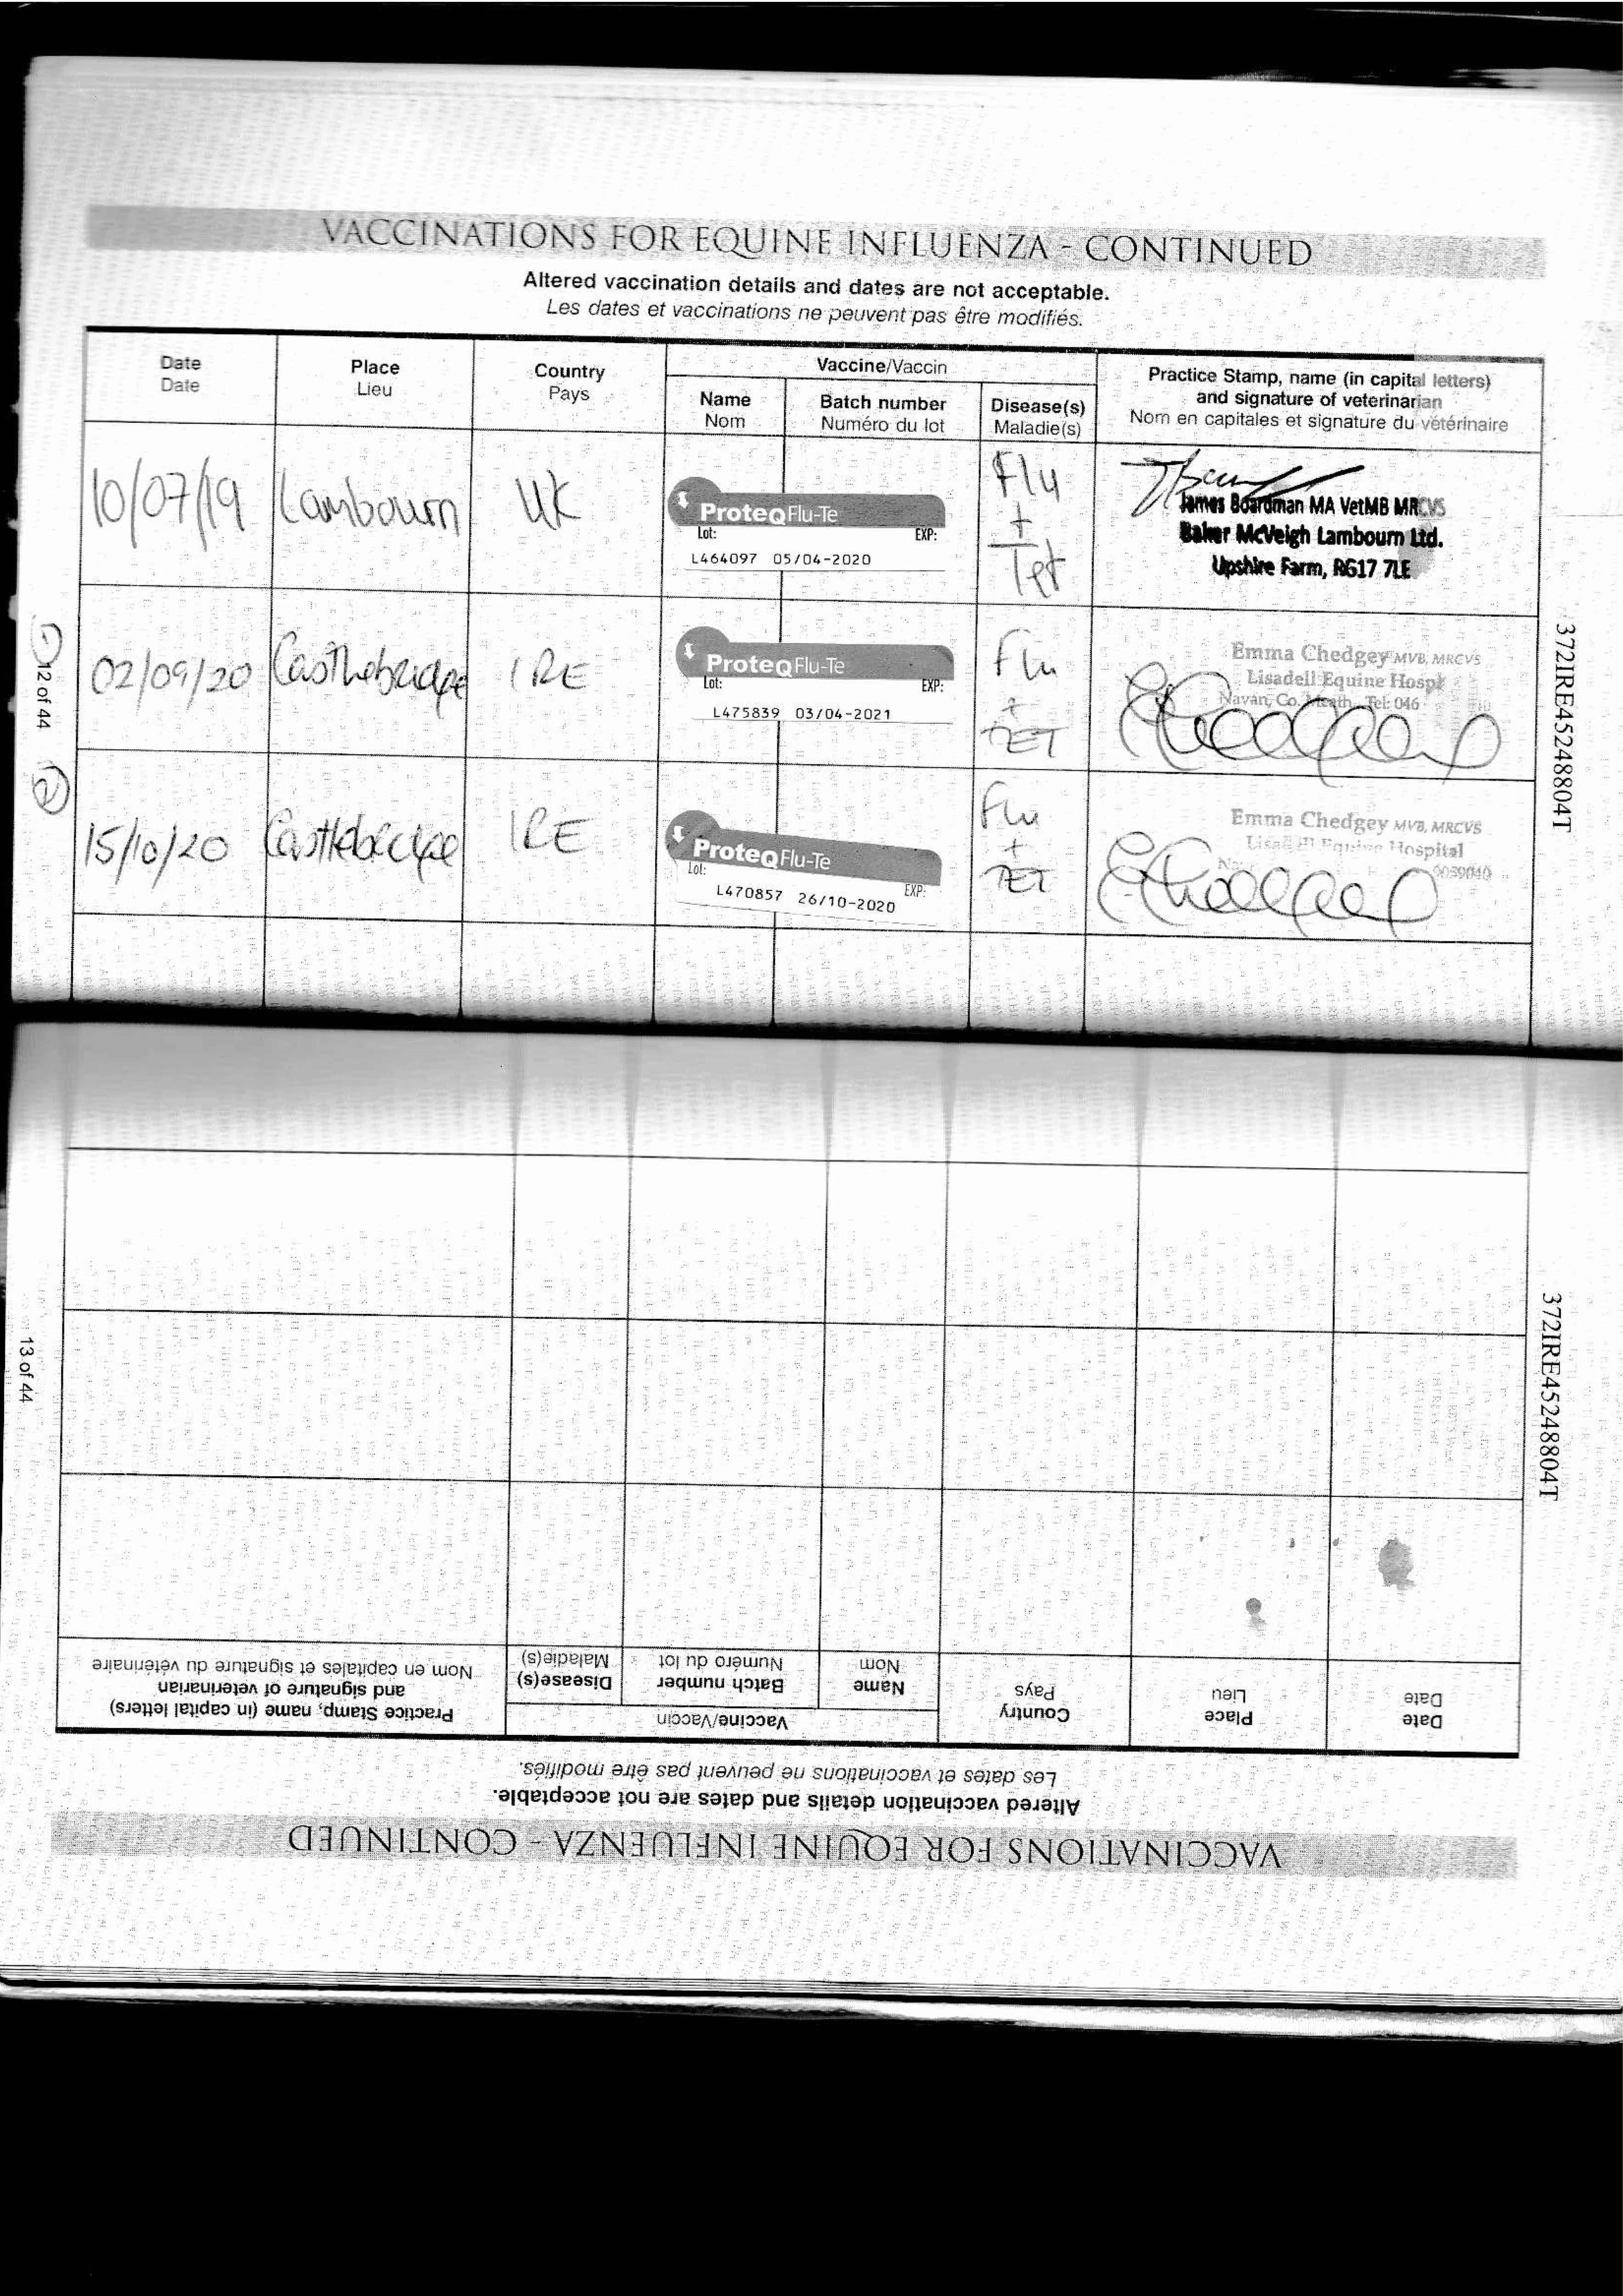 VACCINATIONS FOR EQUINE INFLUENZA - CONTINUED
Altered vaccination details and dates are not acceptable.
Les dates et vaccinations ne peuvent pas être modifiés.
Date
Date
Place
Lieu
Country
Pays
Vaccine/Vaccin
Name
Nom
Batch number
Numéro du lot
Disease(s)
Maladie(s)
Practice Stamp, name (in capital letters)
and signature of veterinarian
Nom en capitales et signature du vétérinaire
10/07/19 Lambourn UK
ProteqFlu-Te
Lot: EXP:
L464097 05/04-2020
Flu
+
Tet
James Boardman MA VetMB MRCVS
Baker McVeigh Lambourn Ltd.
Upshire Farm, RG17 7LE
02/09/20 IRE
ProteqFlu-Te
Lot: EXP:
L475839 03/04-2021
Flu
+
TET
Emma Chedgey MVB, MRCVS
Lisadell Equine Hospi
Navan, Co. Meath. Tel: 046
15/10/20 IRE
ProteqFlu-Te
Lot: EXP:
L470857 26/10-2020
Flu
+
TET
Emma Chedgey MVB, MRCVS
Equine Hospital
9059040
1
12 of 44
2
372IRE45248804T
VACCINATIONS FOR EQUINE INFLUENZA - CONTINUED
Altered vaccination details and dates are not acceptable.
Les dates et vaccinations ne peuvent pas être modifiés.
Date
Date
Place
Lieu
Country
Pays
Vaccine/Vaccin
Name
Nom
Batch number
Numéro du lot
Disease(s)
Maladie(s)
Practice Stamp, name (in capital letters)
and signature of veterinarian
Nom en capitales et signature du vétérinaire
13 of 44
372IRE45248804T